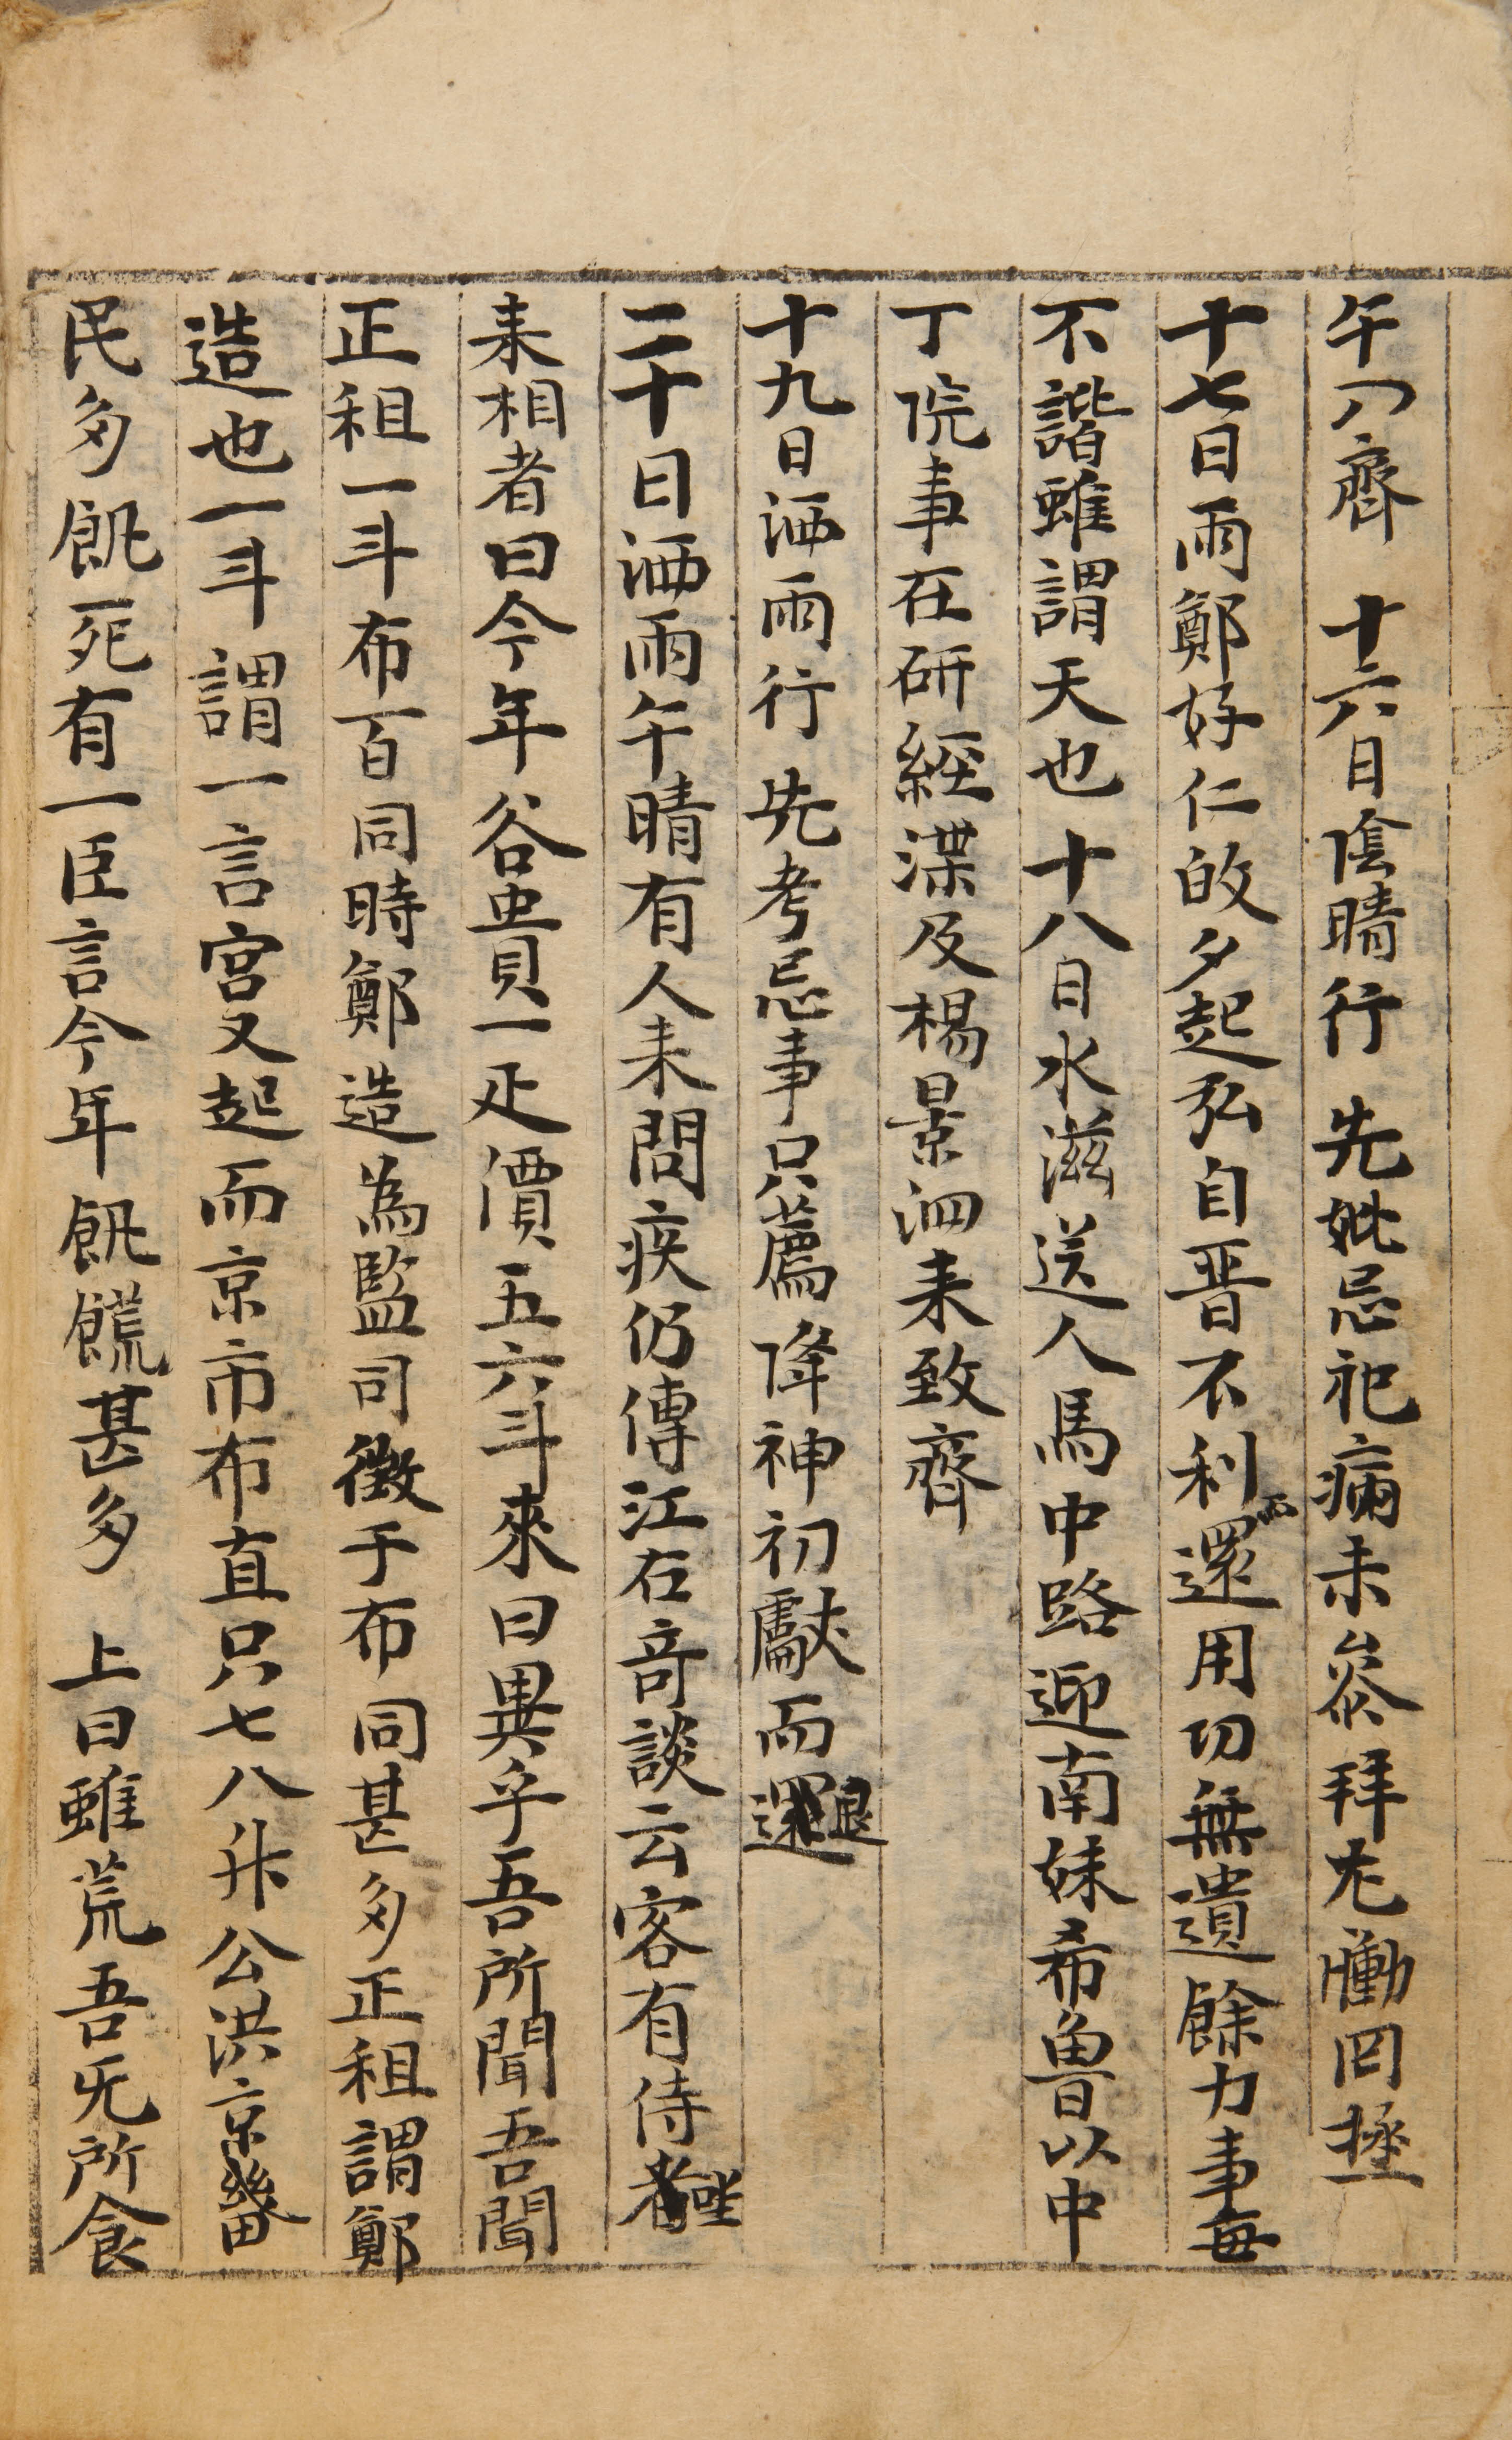 午入齊 十六日陰晴行 先妣忌祀病未叅拜尤慟罔極
十七日雨鄭好仁的夕起弘自晋不利而還用功無遺餘力事每
不諧雖謂天也 十八日水滋送人馬中路迎南妹希魯以中
丁院事在硏經渫及楊景泗来致齊
十九日洒雨行 先考忌事只薦降神初獻而退
二十日洒雨午晴有人来問疾仍傳江右奇談云客有侍坐
来相者曰今年谷貴一疋價五六斗來曰異乎吾所聞吾聞
正租一斗布百同時鄭造為監司徵于布同甚多正租謂鄭
造也一斗謂一言宮又起而京市布直只七八升公洪京畿
民多飢死有一臣言今年飢饉甚多 上曰雖荒吾旡所食